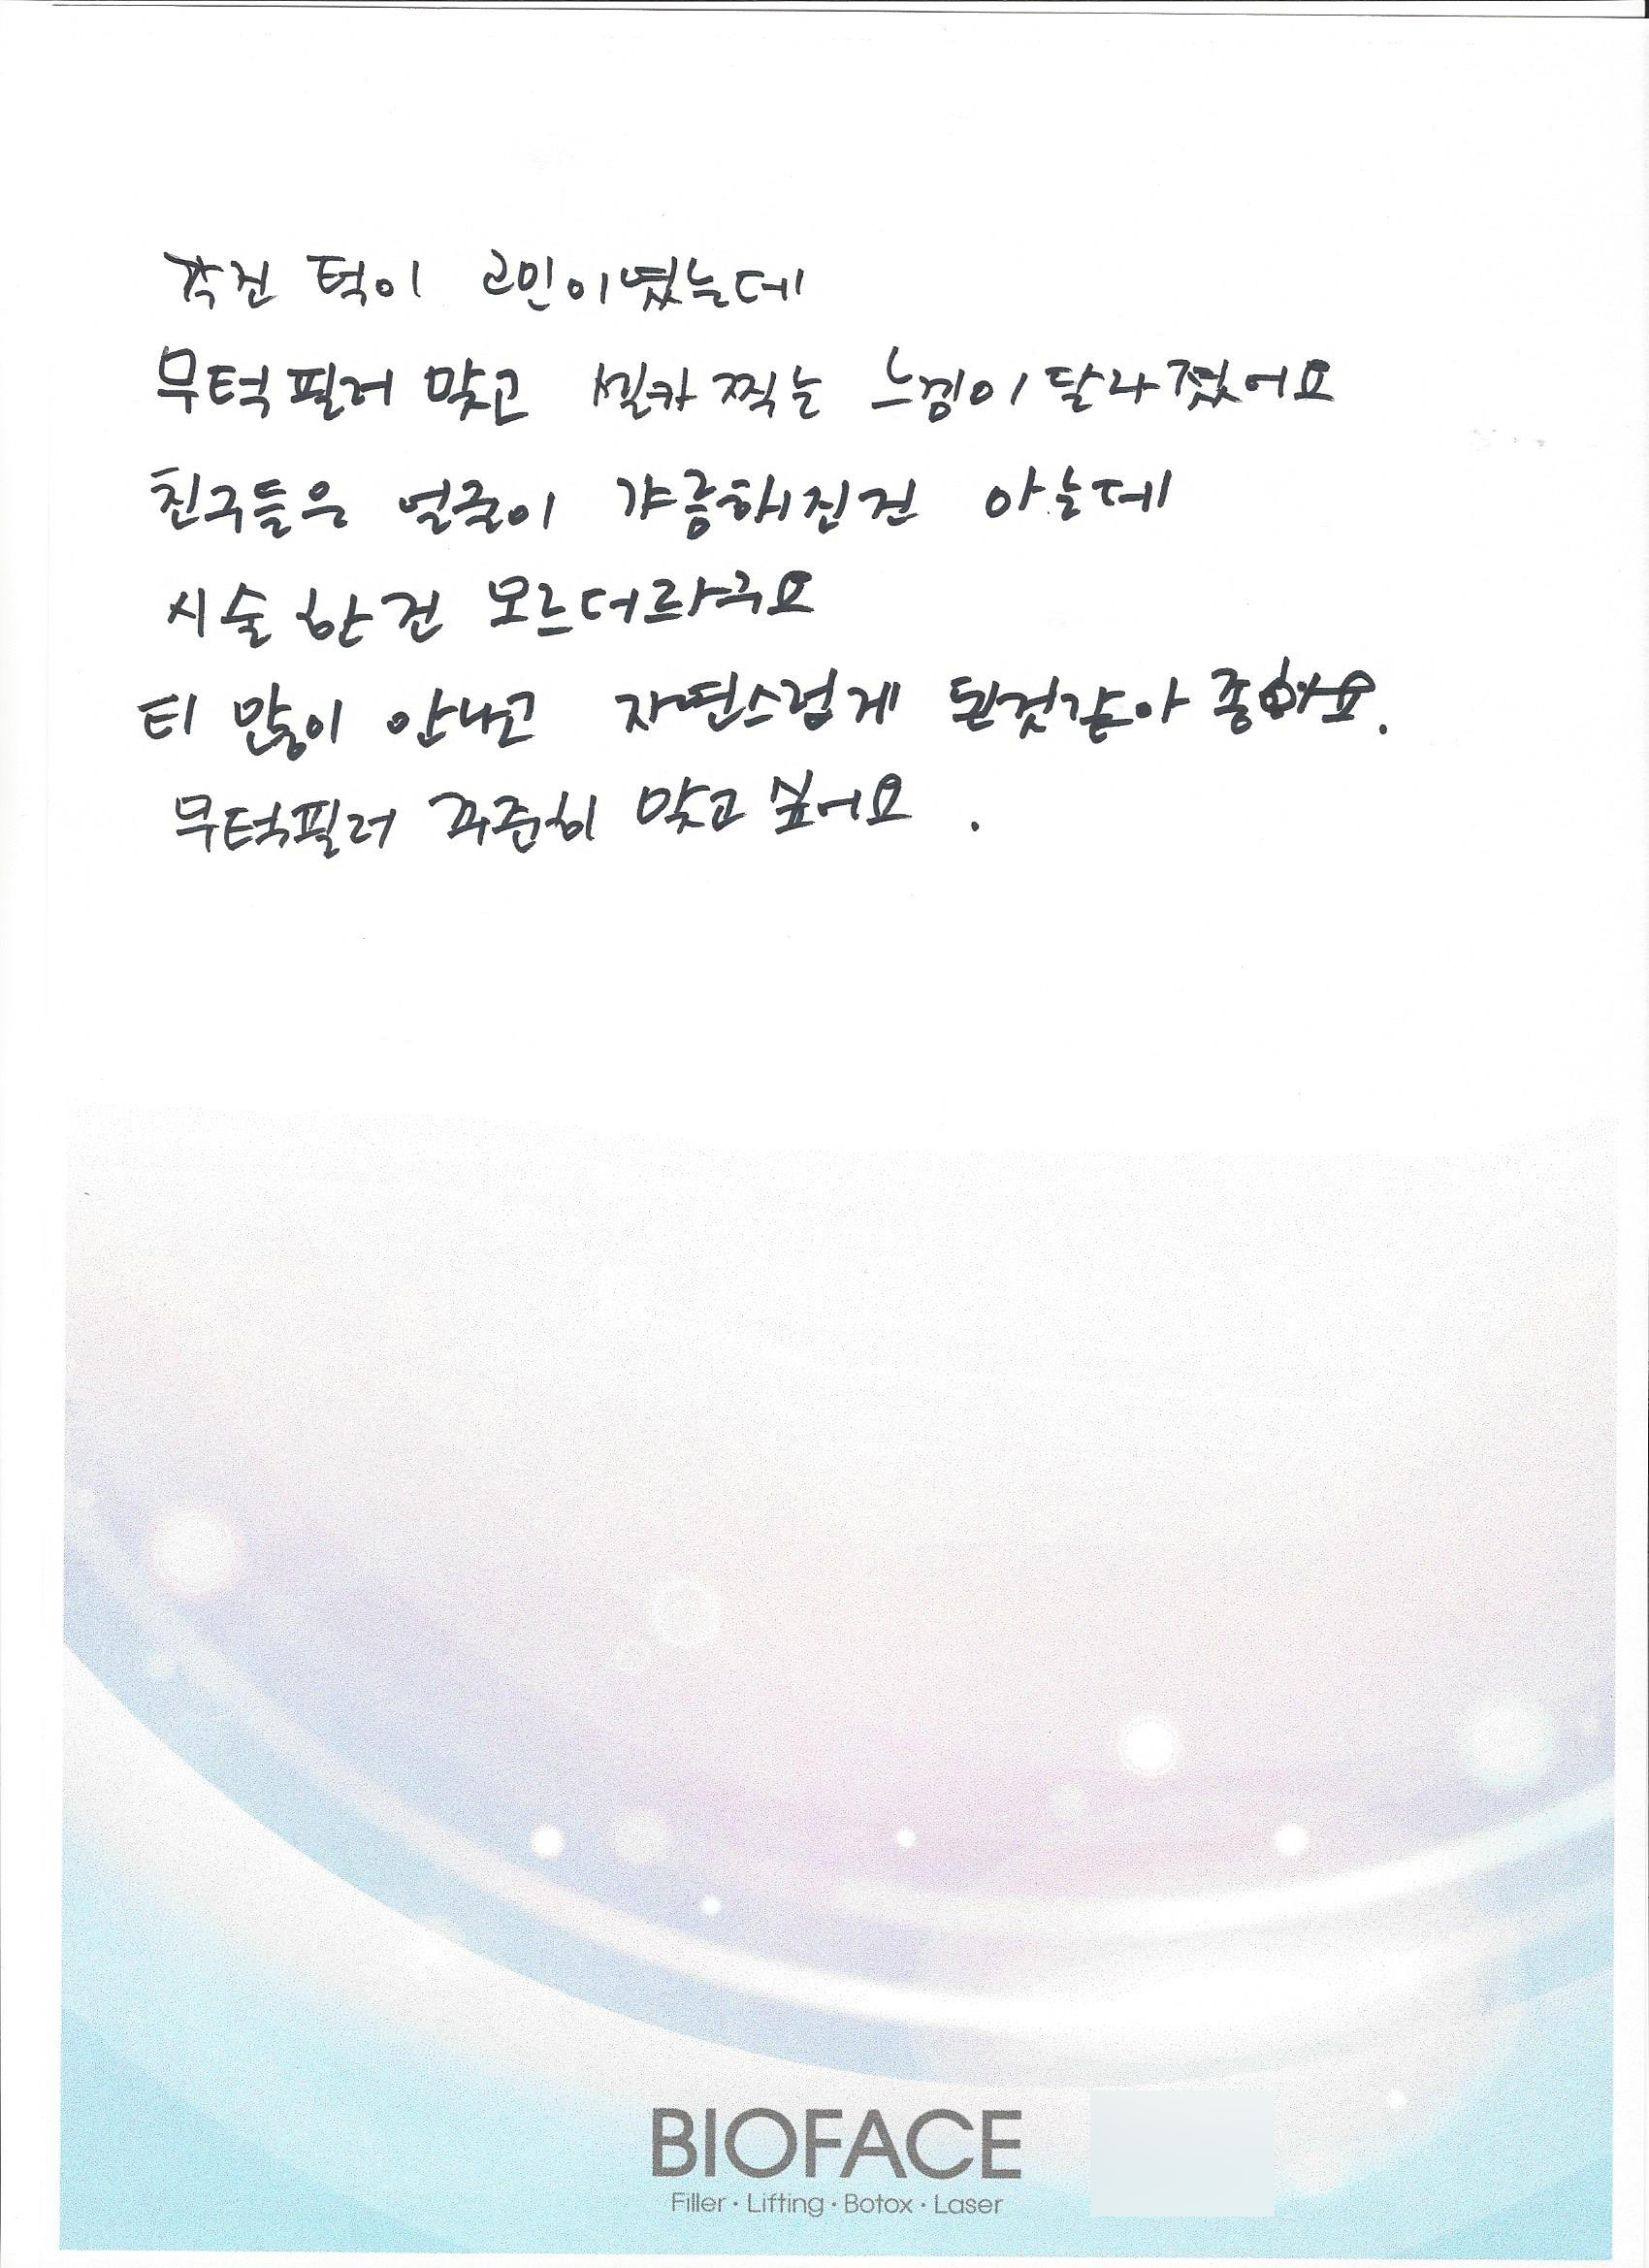 각진 턱이 고민이였는데
무턱필러 맞고 셀카 찍는 느낌이 달라졌어요
친구들은 얼굴이 갸름해진건 아는데
시술 한건 모르더라구요
티 많이 안나고 자연스럽게 된것같아 좋아요.
무턱필러 꾸준히 맞고 싶어요 .
BIOFACE
Filler · Lifting · Botox · Laser